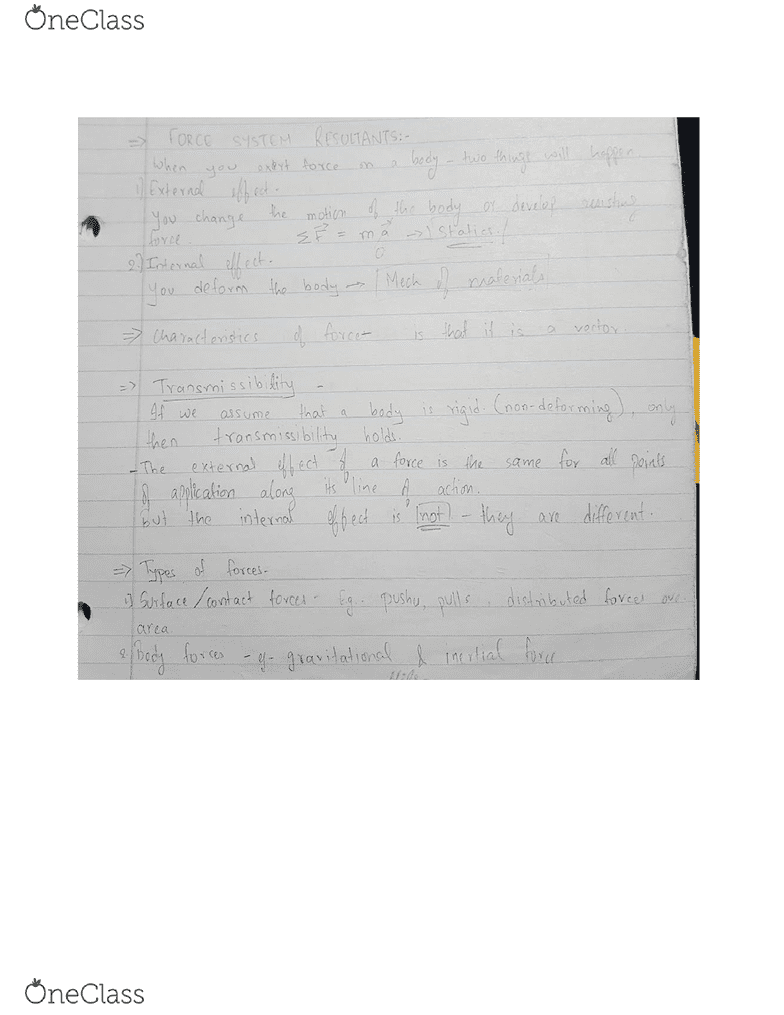 OneClass
⇒ FORCE SYSTEM RESULTANTS:-
When you exert force on a body - two things will happen
1) External effect -
You change the motion of the body or develop resisting
force. ΣF⃗ = ma⃗ → | Statics |
0
2) Internal effect -
You deform the body → [Mech of materials]
⇒ Characteristics of force - is that it is a vector
⇒ Transmissibility -
If we assume that a body is rigid (non-deforming), only
then transmissibility holds.
- The external effect of a force is the same for all points
of application along its line of action.
but the internal effect is |not| - they are different.
⇒ Types of forces -
1) Surface/contact forces - Eg. pushy, pulls, distributed forces over
area
2) body forces - eg - gravitational & inertial force
OneClass